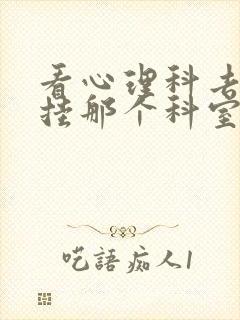 看心理科去
挂那个科室
呓語痴人1